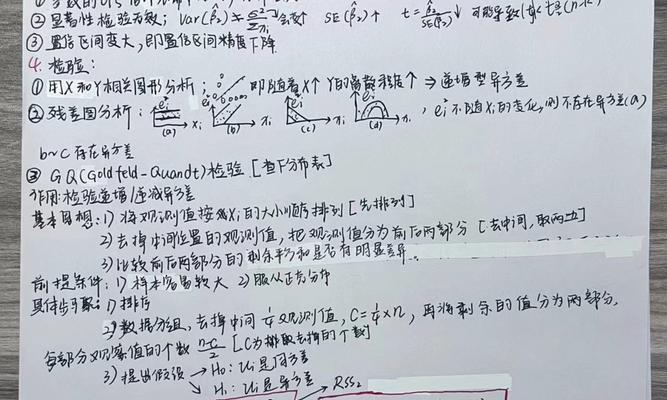 ② 显著性检验无效; Var(β̂₂) ≠ σ²/Σxᵢ² 会变↑ SE(β̂₂)↑ t = β̂₂/SE(β̂₂) ↓ 可能导致
③ 置信区间变大,即置信区间精度下降
4. 检验:
① 用X和Y相关图形分析: 即随着X↑ Y的离散程度↑ ⇒ 递增型异方差
② 残差图分析: eᵢ² xᵢ (a) eᵢ² xᵢ (b) eᵢ² xᵢ (c) eᵢ² xᵢ (d), eᵢ²不随Xᵢ的变化,则不存在异方差(a)
b~c 存在异方差
③ GQ(Goldfeld-Quandt)检验 [查F分布表]
作用:检验递增/递减异方差
基本思想: 1) 将观测值按Xᵢ的大小顺序排列 [先排列]
2) 去掉中间位置的观测值,把观测值分为前后两部分 [去中间,取两边]
3) 比较前后两部分的剩余平方和是否有明显差异
前提条件: 1) 样本容量较大 2) 服从正态分布
具体步骤: 1) 排序
2) 数据分组,去掉中间¼观测值, C=¼×n, 再将剩余的值分为两部分,
每部分观察值的个数 (n-c)/2 [C为排取去掉的个数]
3) 提出假设 → H₀: Uᵢ是同方差
↘ H₁: Uᵢ是异方差
RSS₂